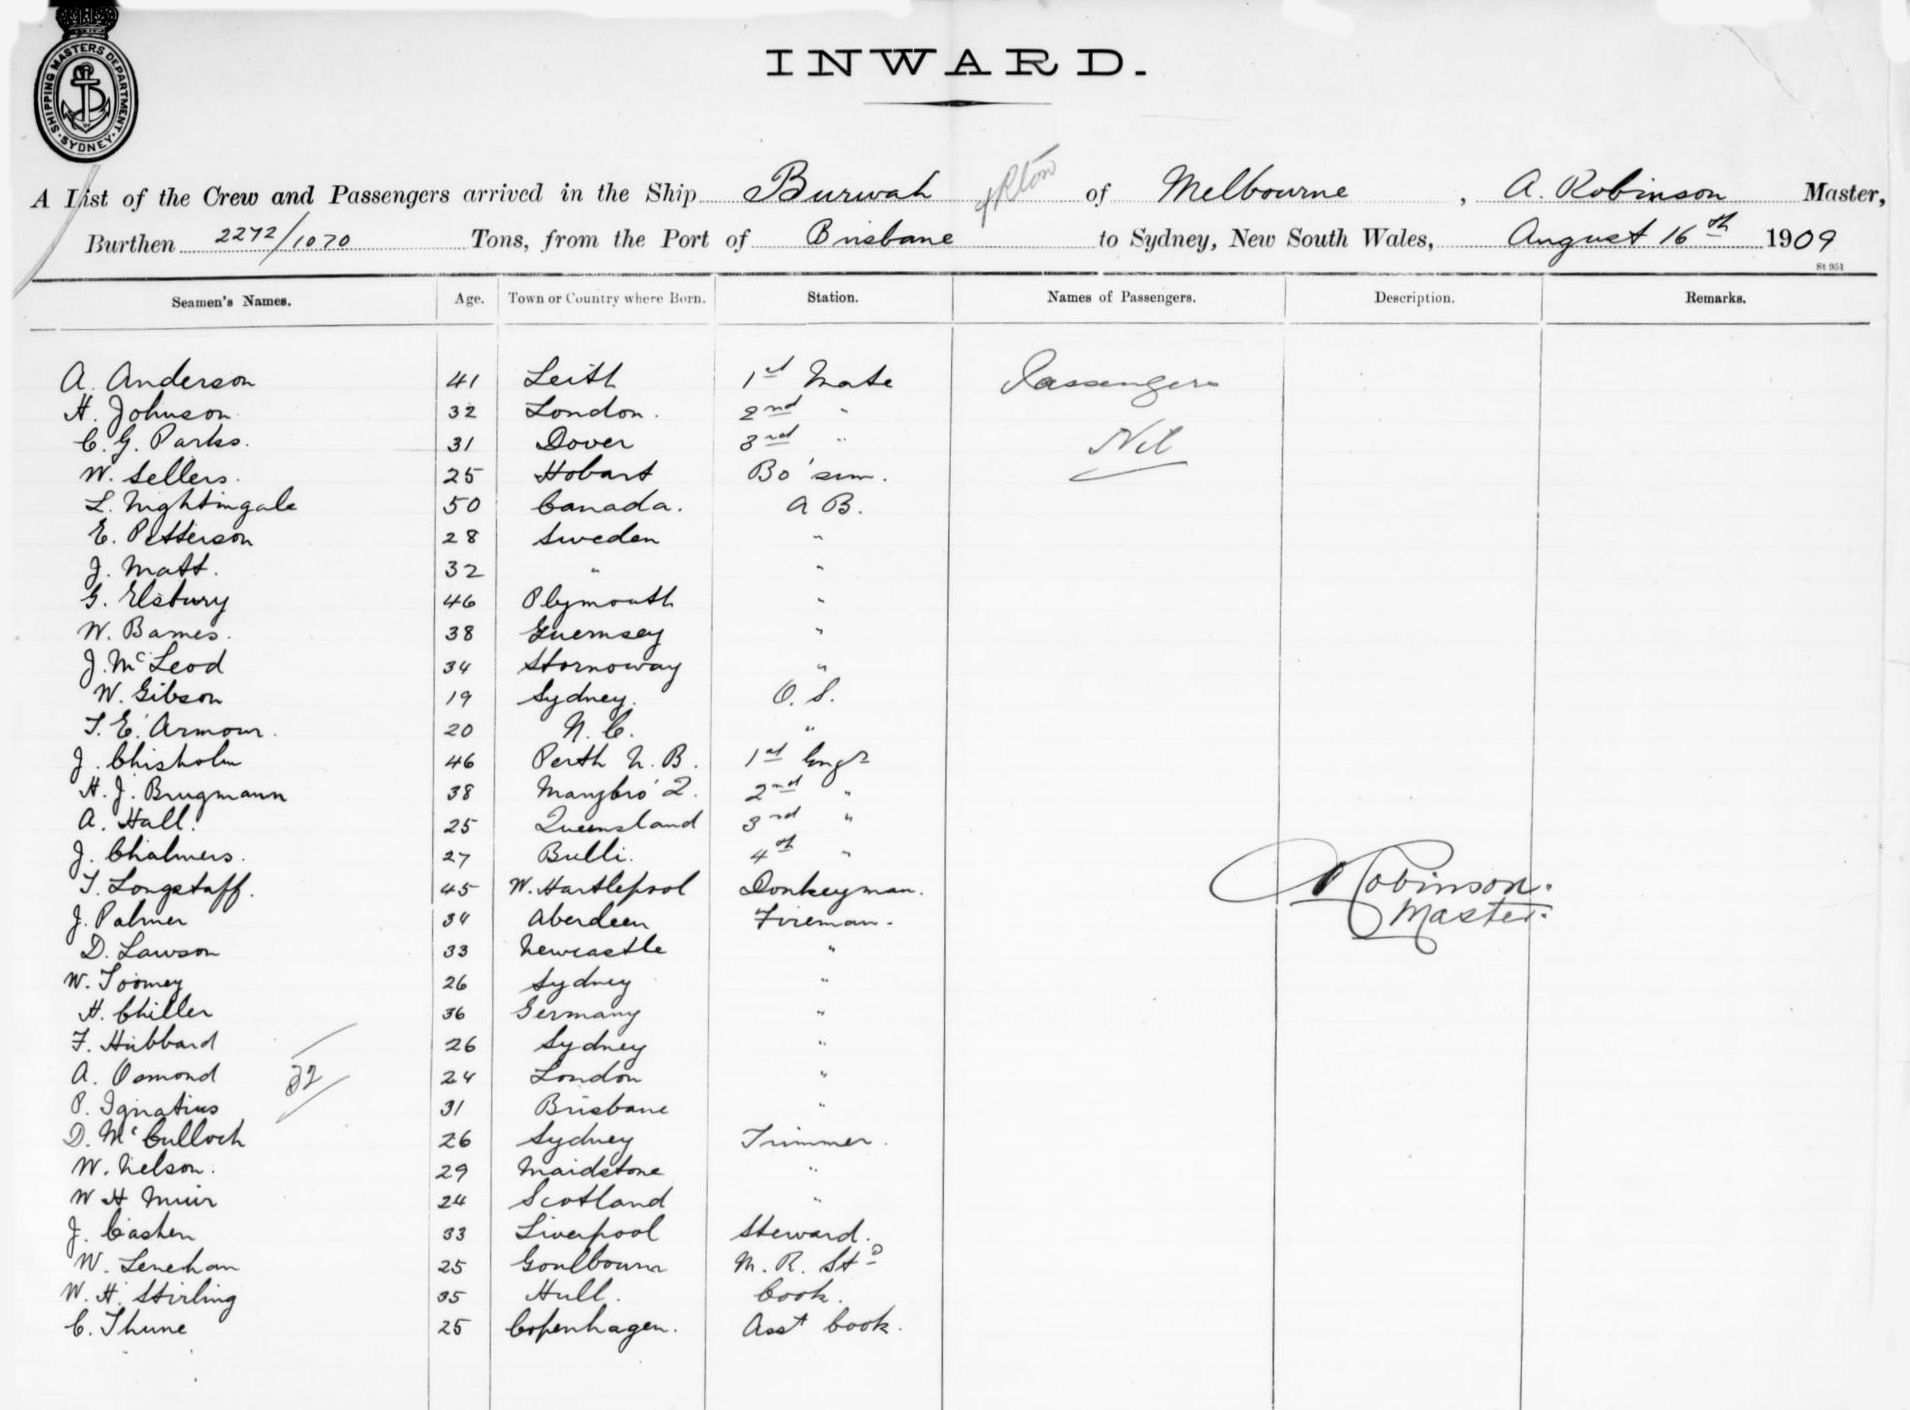 SHIPPING MASTERS DEPARTMENT
SYDNEY
INWARD.
A List of the Crew and Passengers arrived in the Ship Burwah of Melbourne, A. Robinson Master,
Burthen 2272/1070 Tons, from the Port of Brisbane to Sydney, New South Wales, August 16th 1909
St 951
Seamen's Names. Age. Town or Country where Born. Station. Names of Passengers. Description. Remarks.
A. Anderson 41 Leith 1st Mate Passengers
H. Johnson 32 London. 2nd "
C. G. Parks. 31 Dover 3rd " Nil
W. Sellers. 25 Hobart Bo'sun.
L. Nightingale 50 Canada. A B.
E. Petterson 28 Sweden "
J. Matt. 32 " "
G. Elsbury 46 Plymouth "
W. Barnes. 38 Guernsey "
J. McLeod 34 Stornoway "
W. Gibson 19 Sydney. O. S.
T. E. Armour. 20 N. C. "
J. Chisholm 46 Perth N. B. 1st Engr
H. J. Brugmann 38 Marybro' Q. 2nd "
A. Hall. 25 Queensland 3rd "
J. Chalmers. 27 Bulli. 4th "
T. Longstaff. 45 W. Hartlepool Donkeyman. A Robinson.
J. Palmer 34 Aberdeen Fireman. Master.
D. Lawson 33 Newcastle "
W. Toomey 26 Sydney "
H. Chiller 36 Germany "
F. Hubbard 26 Sydney "
A. Osmond 24 London "
32
P. Ignatius 31 Brisbane "
D. McCulloch 26 Sydney Trimmer.
W. Nelson. 29 Maidstone "
W H Muir 24 Scotland "
J. Cashen 33 Liverpool Steward.
W. Lenehan 25 Goulbourn M. R. Std
W. H. Stirling 35 Hull. Cook.
C. Thune 25 Copenhagen. Asst Cook.